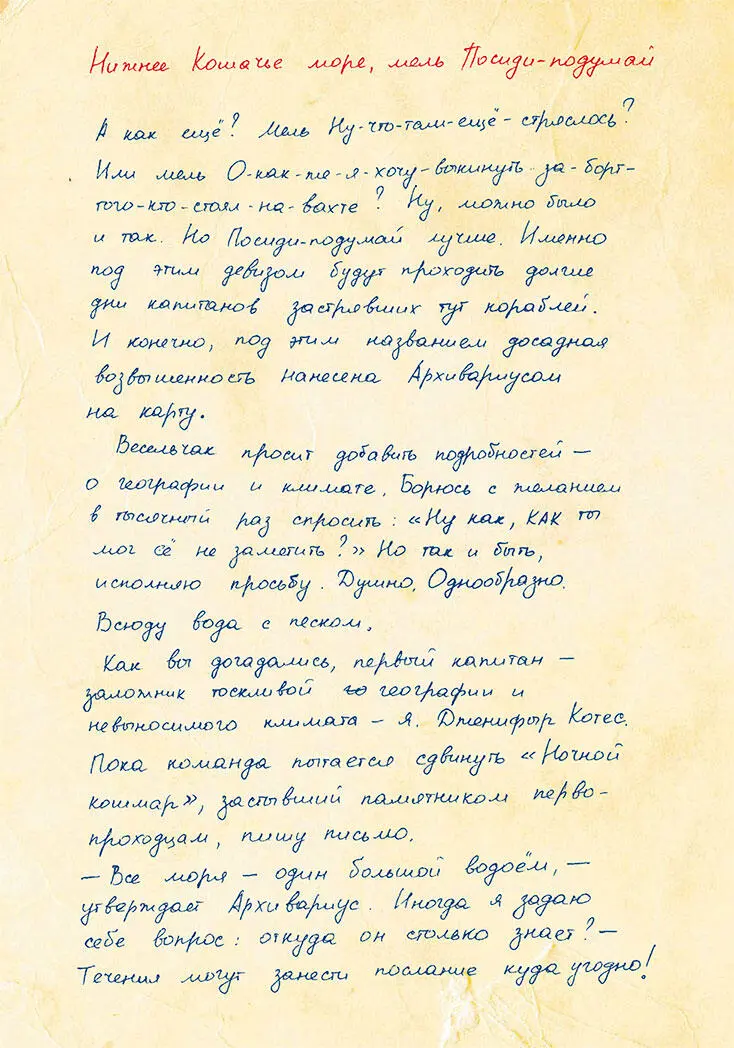 Нижнее Кошачье море, мель Посиди-подумай
А как ещё? Мель Ну-что-там-ещё-стряслось?
Или мель О-как-же-я-хочу-выкинуть-за-борт-
того-кто-стоял-на-вахте? Ну, можно было
и так. Но Посиди-подумай лучше. Именно
под этим девизом будут проходить долгие
дни капитанов застрявших тут кораблей.
И конечно, под этим названием досадная
возвышенность нанесена Архивариусом
на карту.
Весельчак просит добавить подробностей –
о географии и климате. Борюсь с желанием
в тысячный раз спросить: «Ну как, КАК ты
мог её не заметить?» Но так и быть,
исполняю просьбу. Душно. Однообразно.
Всюду вода с песком.
Как вы догадались, первый капитан –
заложник тоскливой географии и
невыносимого климата – я. Дженифыр Котес.
Пока команда пытается сдвинуть «Ночной
кошмар», застывший памятником перво-
проходцам, пишу письмо.
– Все моря – один большой водоём, –
утверждает Архивариус. Иногда я задаю
себе вопрос: откуда он столько знает? –
Течения могут занести послание куда угодно!